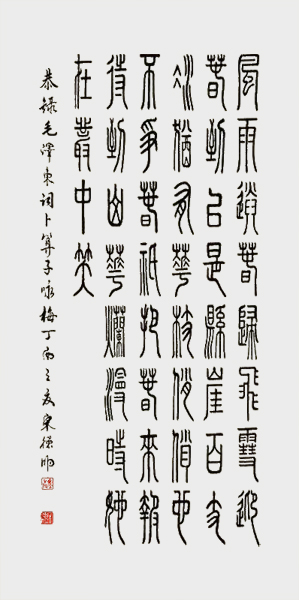 風雨送春歸飛雪迎
春到已是縣崖百丈
冰猶有華枝俏俏也
不爭春祇把春來報
待到山華爛漫時她
在叢中笑
恭錄毛澤東詞卜算子詠梅丁酉之夏